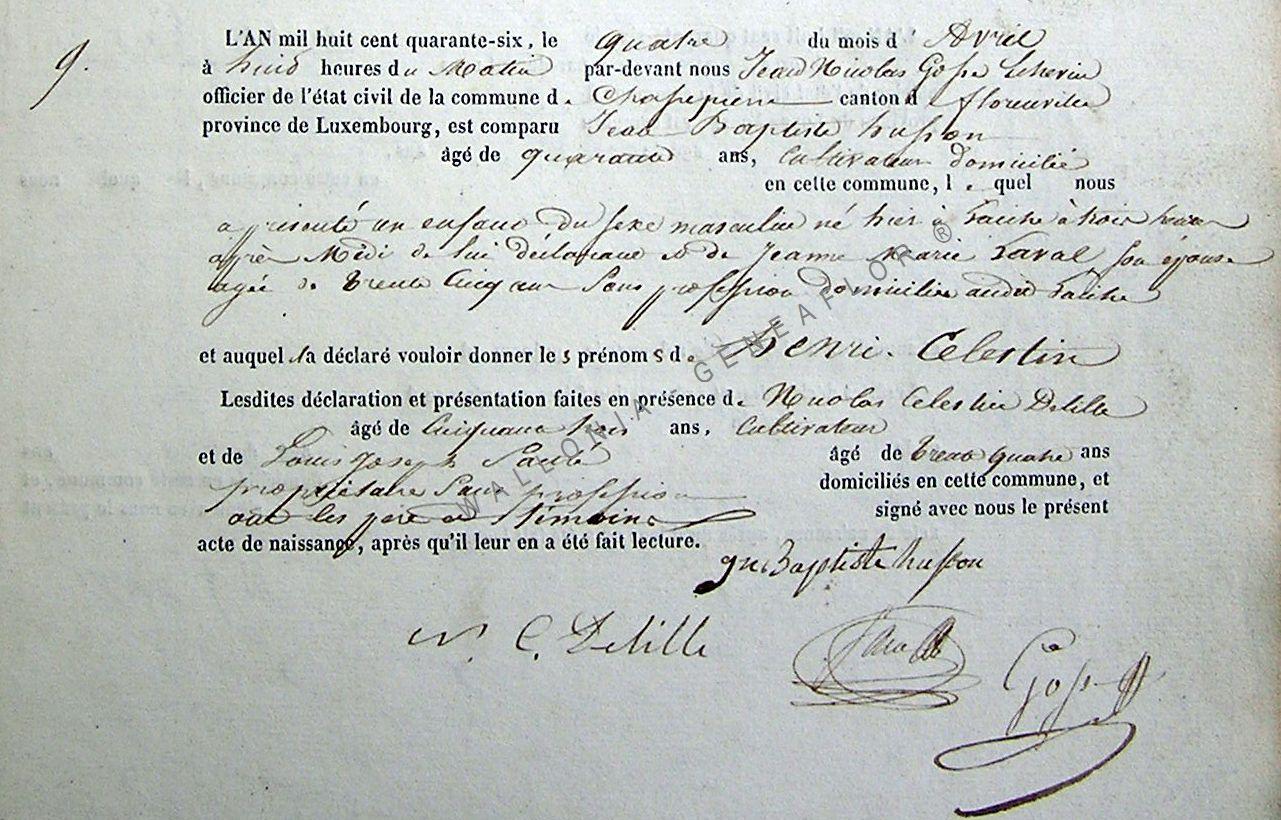 9.
L'AN mil huit cent quarante-six, le quatre du mois d'Avril
à huit heures du Matin par-devant nous Jean Nicolas Gosse Echevin
officier de l'état civil de la commune de Chassepierre canton de florenville
province de Luxembourg, est comparu Jean Baptiste husson
âgé de quarante ans, Cultivateur domicilié
en cette commune, lequel nous
a présenté un enfant du sexe masculin né hier à Laiche à trois heures
après Midi de lui déclarant et de Jeanne Marie Laval son épouse
agée de trente Cinq ans Sans profession domiciliée audit Laiche
et auquel il a déclaré vouloir donner les prénoms de Henri Celestin
Lesdites déclaration et présentation faites en présence de Nicolas Celestin Delille
âgé de Cinquante trois ans, Cultivateur
et de Louis Joseph âgé de trente quatre ans
propriétaire Sans profession domiciliés en cette commune, et
ont les père et témoins signé avec nous le présent
acte de naissance, après qu'il leur en a été fait lecture.
jn Baptiste husson
N. C. Delille
Gosse
WALLONIA GENEAFLOR ®